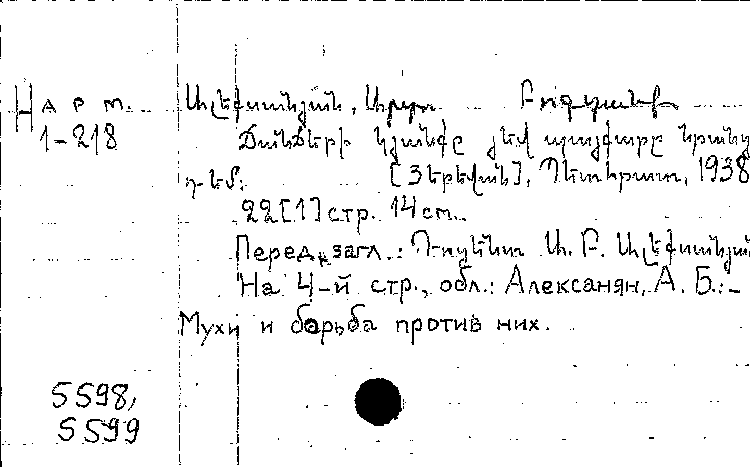 Н А Р М. Ալեքսանյան, Աբրահամ Բոգդանի
1-218
Ճանճերի կյանքը յեվ պայքարը նրանց
դեմ: [Յերեվան], Պետհրատ, 1938
22[1] стр. 14 см.
Перед загл.: Դոցենտ Ա. Բ. Ալեքսանյան
На 4-й стр., обл.: Алексанян, А. Б.:-
Мухи и борьба против них.
5598,
5599